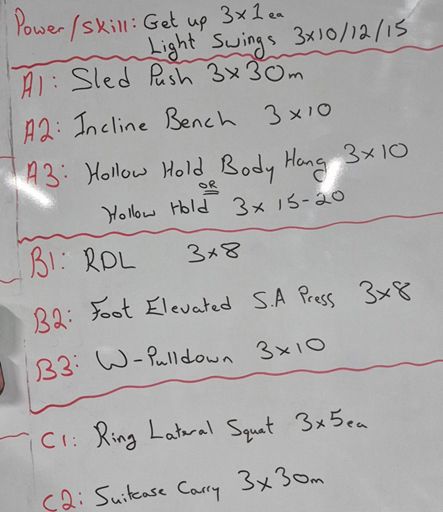 Power/skill: Get up 3x1ea
Light Swings 3x10/12/15
A1: Sled Push 3x30m
A2: Incline Bench 3x10
A3: Hollow Hold Body Hang 3x10
OR
Hollow Hold 3x 15-20
B1: RDL 3x8
B2: Foot Elevated S.A Press 3x8
B3: W-Pulldown 3x10
C1: Ring Lateral Squat 3x5ea
C2: Suitcase Carry 3x30m